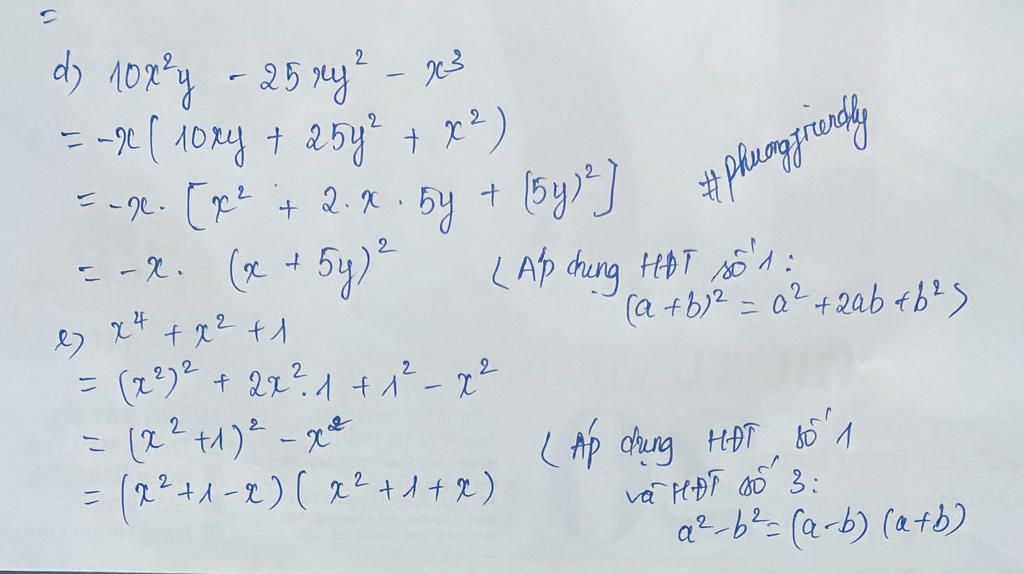 =
d) 10x²y - 25xy² - x³
= -x( 10xy + 25y² + x² )
#phuongfriendly
= -x. [x² + 2. x. 5y + (5y)²]
= -x. (x + 5y)² ( Áp dụng HĐT số 1:
(a + b)² = a² + 2ab + b² )
e) x⁴ + x² + 1
= (x²)² + 2x². 1 + 1² - x²
= (x² +1)² - x² ( Áp dụng HĐT số 1
= (x² +1 - x) ( x² +1 + x) và HĐT số 3:
a² - b² = (a - b) (a + b)